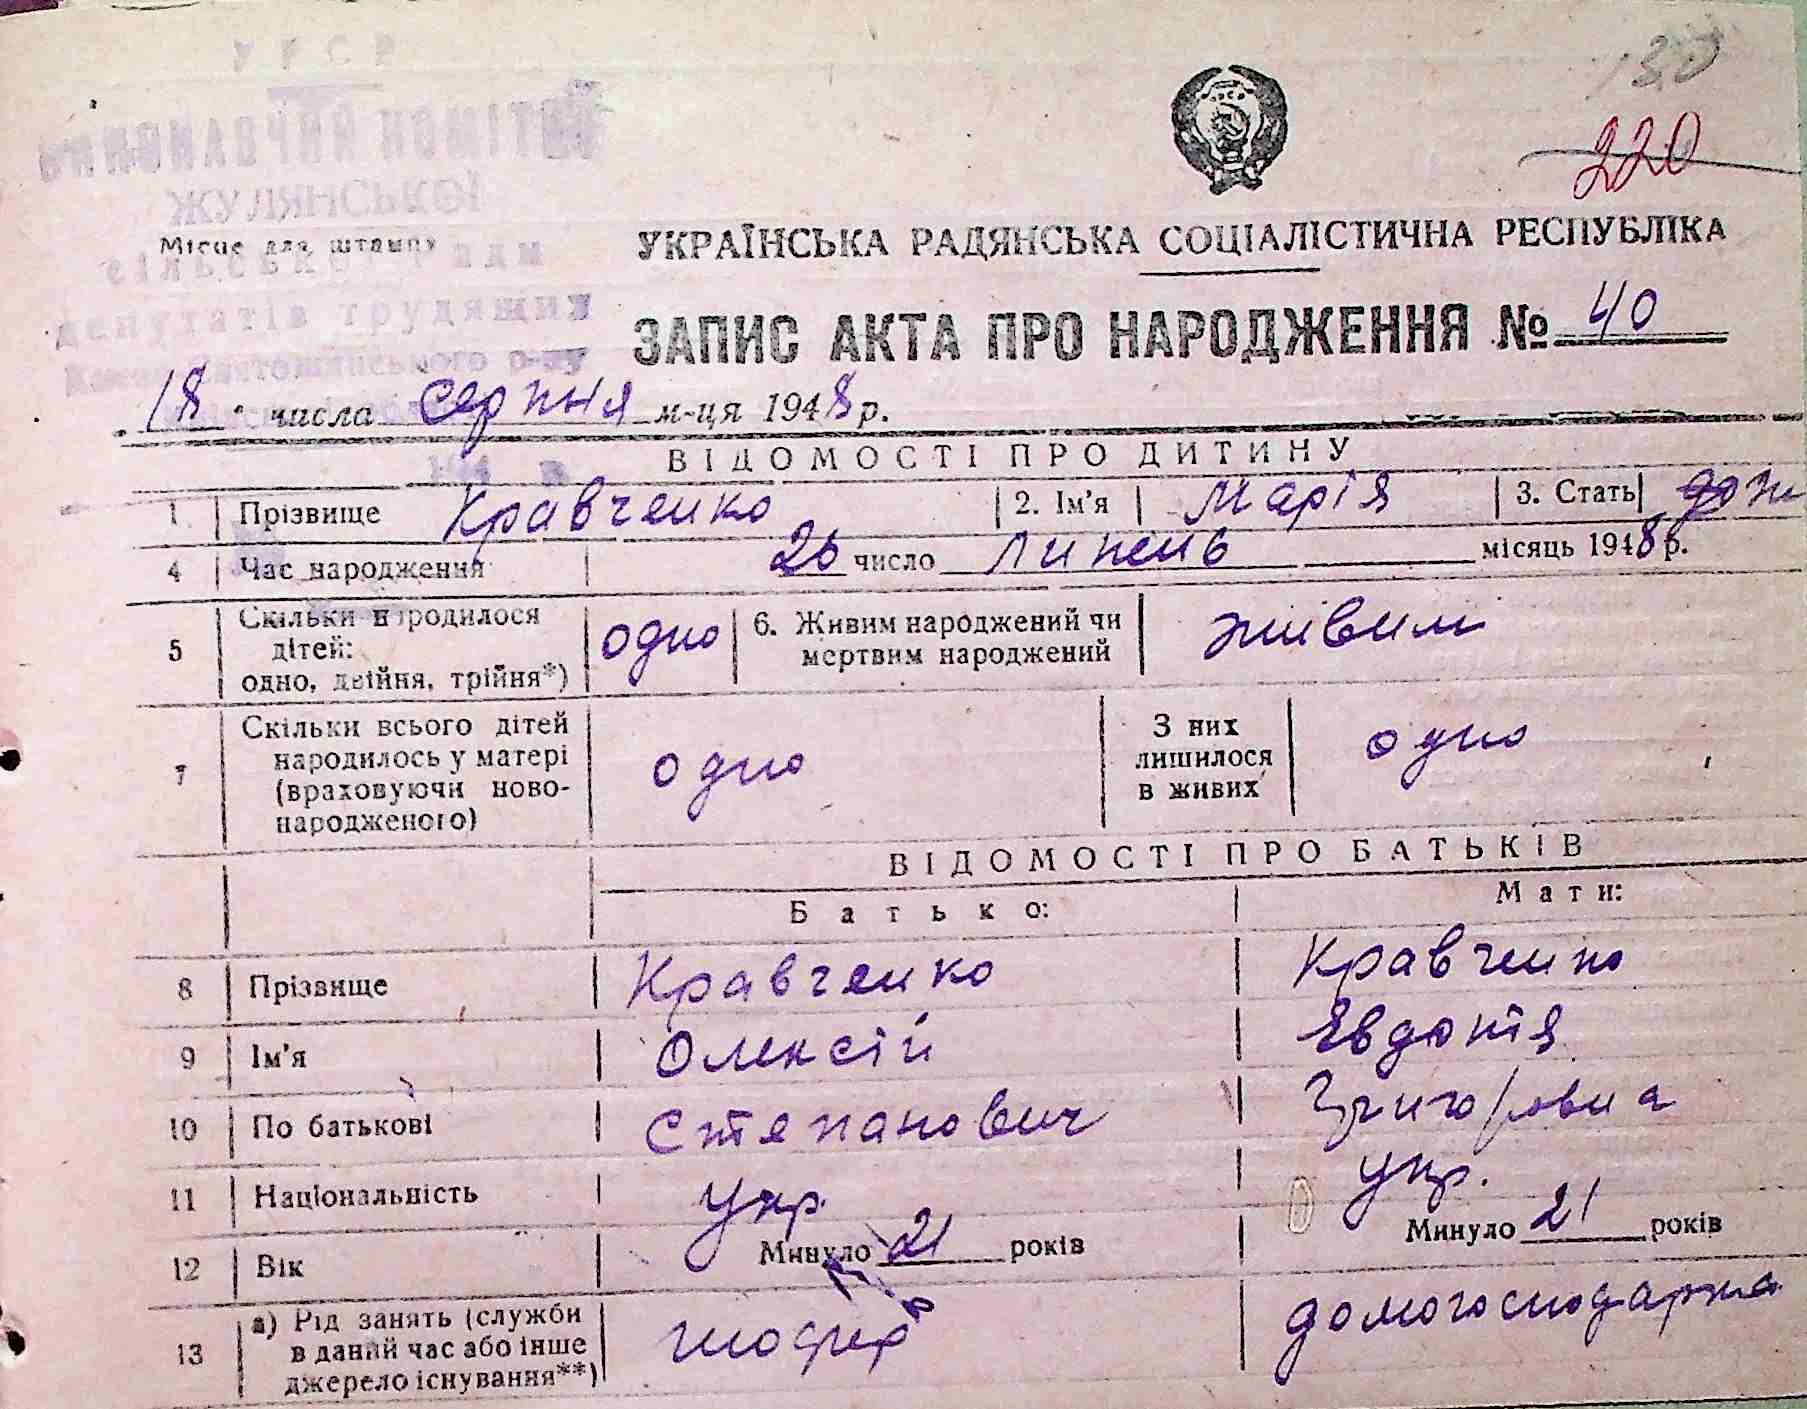 130
220
УРСР
ВИКОНАВЧИЙ КОМІТЕТ
ЖУЛЯНСЬКОЇ
Місце для штампу
сільської ради
депутатів трудящих
УКРАЇНСЬКА РАДЯНСЬКА СОЦІАЛІСТИЧНА РЕСПУБЛІКА
ЗАПИС АКТА ПРО НАРОДЖЕННЯ № 40
18 числа серпня м-ця 1948 р.
ВІДОМОСТІ ПРО ДИТИНУ
1 Прізвище Кравченко 2. Ім'я Марія 3. Стать
4 Час народження 26 число Липень місяць 1948 р.
5 Скільки народилося дітей: одно, двійня, трійня*) одно 6. Живим народжений чи мертвим народжений живим
7 Скільки всього дітей народилось у матері (враховуючи ново-народженого) одно З них лишилося в живих одно
ВІДОМОСТІ ПРО БАТЬКІВ
Батько: Мати:
8 Прізвище Кравченко Кравченко
9 Ім'я Олексій Явдотія
10 По батькові Степанович Григоровна
11 Національність укр. укр.
12 Вік Минуло 21 років Минуло 21 років
13 а) Рід занять (служби в даний час або інше джерело існування**) шофер домогосподарка